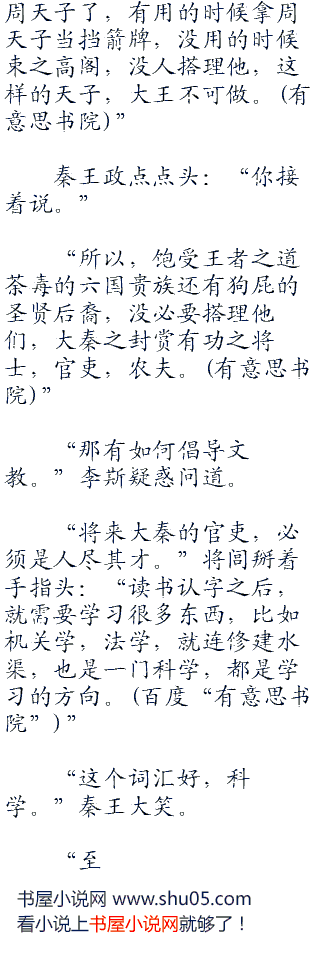 周天子了，有用的时候拿周
天子当挡箭牌，没用的时候
束之高阁，没人搭理他，这
样的天子，大王不可做。(有
意思书院)”
秦王政点点头：“你接
着说。”
“所以，饱受王者之道
荼毒的六国贵族还有狗屁的
圣贤后裔，没必要搭理他
们，大秦之封赏有功之将
士，官吏，农夫。(有意思书
院)”
“那有如何倡导文
教。”李斯疑惑问道。
“将来大秦的官吏，必
须是人尽其才。”将闾掰着
手指头：“读书认字之后，
就需要学习很多东西，比如
机关学，法学，就连修建水
渠，也是一门科学，都是学
习的方向。(百度“有意思书
院”)”
“这个词汇好，科
学。”秦王大笑。
“至
书屋小说网 www.shu05.com
看小说上书屋小说网就够了！